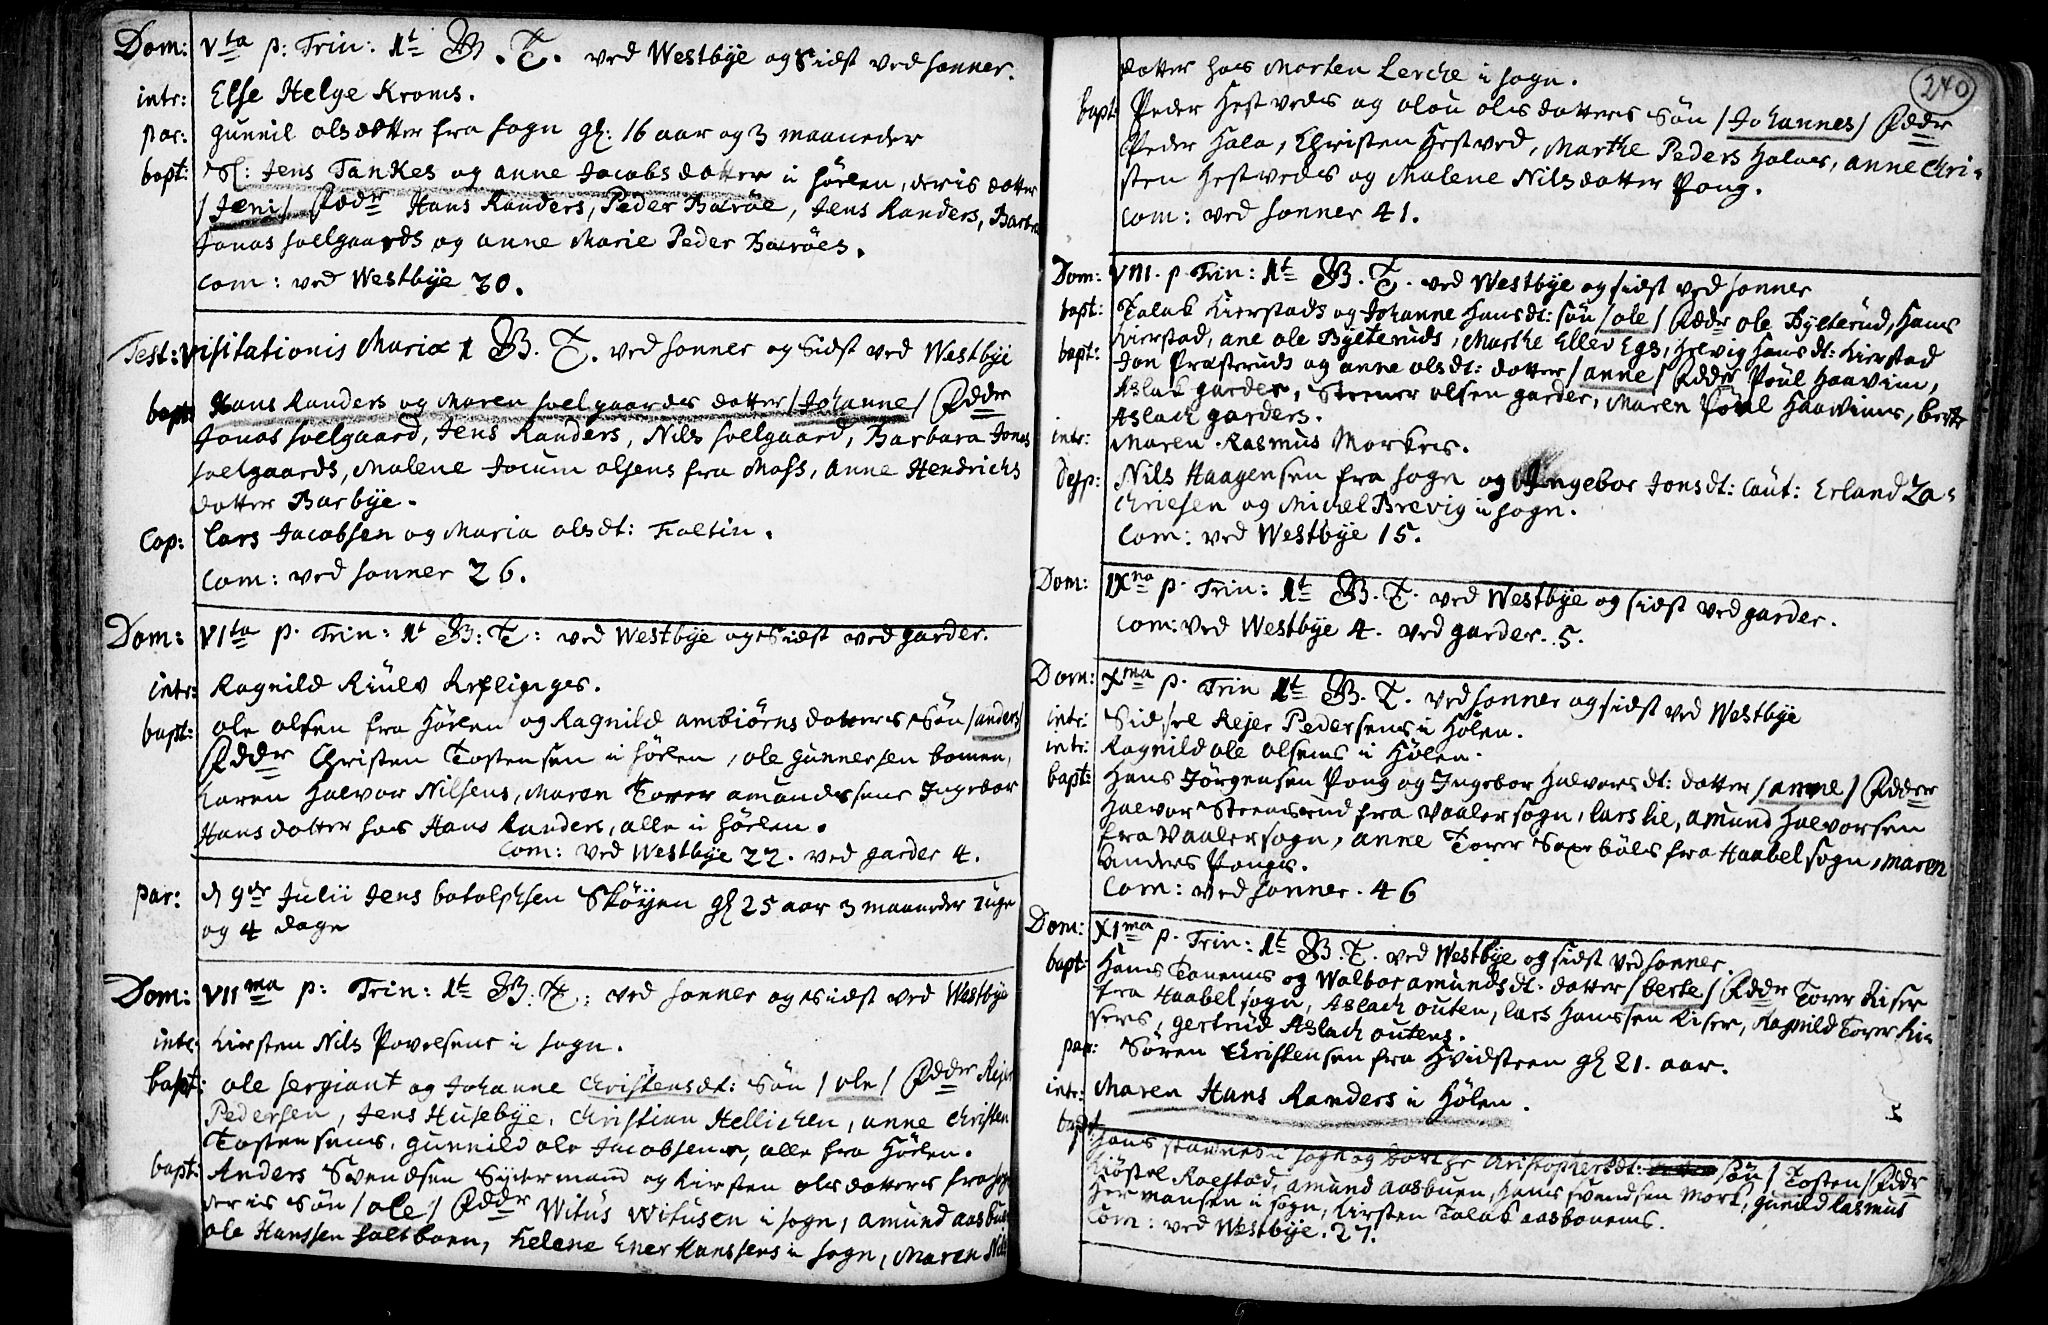 Dom: Vta p: Trin: 1t B. T. ved Westbÿe og Sidst ved sonner.
intr: Else Helge Kroms.
par: gunnil olsdotter fra sogn gl: 16 aar og 3 maaneder
bapt: Sl: Jens Tankes og anne Jacobsdotter i hölen, deris dotter
/Jeni/ Faddr Hans Randers, Peder Baröe, Jens Randers, Barbra
Jonas soelgaards og anne Marie Peder Baröes.
Com: ved Westbÿe 30.
Fest: Visitationis Mariæ 1 B. T. ved sonner og Sidst ved Westbÿe
bapt: Hans Randers og Maren soelgaardes dotter /Johanne/ Faddr
Jonas soelgaard, Jens Randers, Nils soelgaard, Barbara Jonas
soelgaards, Malene Jocum olsens fra Moss, anne Hendrichs
dotter Barbÿe.
Cop: Lars Jacobsen og Maria olsdt: Foltin.
Com: ved sonner 26.
Dom: VIta p. Trin: 1t B: T: ved Westbÿe og Sidst ved garder.
intr: Ragnild Riulv Reflinges.
bapt: ole olsen fra hölen og Ragnild ambiörnsdotters Sön /anders/
Faddr Christen Tostensen i hölen, ole gunnersen bomen,
Karen Halvor Nilsens, Maren Torer amundssens Ingebor
Hansdotter hos Hans Randers, alle i hölen.
Com: ved Westbÿe 22. ved garder 4.
par: d 9de Julii Jens botolphsen Sköÿen gl 25 aar 3 maaneder 1 uge
og 4 dage
Dom: VIIma p: Trin: 1t B: T: ved sonner og Sidst ved Westbÿe
intr: Kirsten Nils Povelsens i sogn.
bapt: ole sergiant og Johanne Christensdt: Sön /ole/ Faddr Rejer
Pedersen, Jens Husebÿe, Christian Hellichen, anne Christen
Tostensens, gunnild ole Jacobsens, alle fra Hölen.
bapt: Anders Svendsen Sÿvermand og Kirsten olsdotters fra sogn
deris Sön /ole/ Faddr Witus Witusen i sogn, amund aasbuen
ole Hanssen saltboen, helene Ener Hanssens i sogn, Maren Nils
240
dotter hos Morten Lerche i sogn.
bapt: Peder Hestveds og olou olsdotters Sön /Johannes/ Faddr
Peder Hala, Christen Hestved, Marthe Peders Halas, anne Chri-
sten Hestveds og Malene Nilsdotter Pong.
Com: ved sonner 41.
Dom: VIII. p Trin: 1t B. T. ved Westbÿe og sidst ved sonner
bapt: Talak Kierstads og Johanne Hansdt: sön /ole/ Faddr ole Bÿlterud, Hans
Kierstad, ane ole Bÿlteruds, Marthe Ellev Egs, Helvig Hansdt: Kierstad
bapt: Jon Præsteruds og anne olsdt: dotter /anne/ Faddr Pöul Haavim,
Aslak garder, Steener olsen garder, Maren Pöul Haavims, berte
Aslach garders.
intr: Maren Rasmus Morkers.
desp: Nils Haagensen fra sogn og Ingebor Jonsdt: Caut: Erland Za-
chriesen og Michel Brevig i sogn.
Com: ved Westbÿe 15.
Dom: IXna p. Trin: 1t B. T. ved Westbÿe og sidst ved garder.
Com: ved Westbÿe 4. ved garder. 5.
Dom: Xma p. Trin 1t B. T. ved sonner og sidst ved Westbÿe
intr: Sidsel Rejer Pedersens i Hölen.
intr: Ragnild ole olsens i Hölen.
bapt: Hans Jörgensen Pong og Ingebor Halvorsdt: dotter /anne/ Fadder
Halvor Steensrud fra Vaalersogn, Lars lie, amund Halvorsen
fra Vaalersogn, anne Torer Saxeböls fra Haabelsogn, maren
Anders Ponges.
Com: ved sonner. 46
Dom: XIma p. Trin: 1t B. T. ved Westbÿe og sidst ved sonner.
bapt: Hans Tanems og Walbor amundsdt. dotter /berte/ Faddr Torer Kiser
fra Haabelsogn, Aslach outen, Lars Hanssen Kiser, Ragnild Torer Ki-
sers, gertrud Aslach outens.
par: Sören Christensen fra Hvidsteen gl 21. aar.
intr: Maren Hans Randers i Hölen.
bapt: Hans i sogn og Christophersdt: sön /Tosten/ Faddr
Kiöstel Roestad, amund aasbuen, Hans svendsen Mork, gunild Rasmus
Hermansen i sogn, Kirsten Talak aasbouens.
Com: ved Westbÿe. 27.